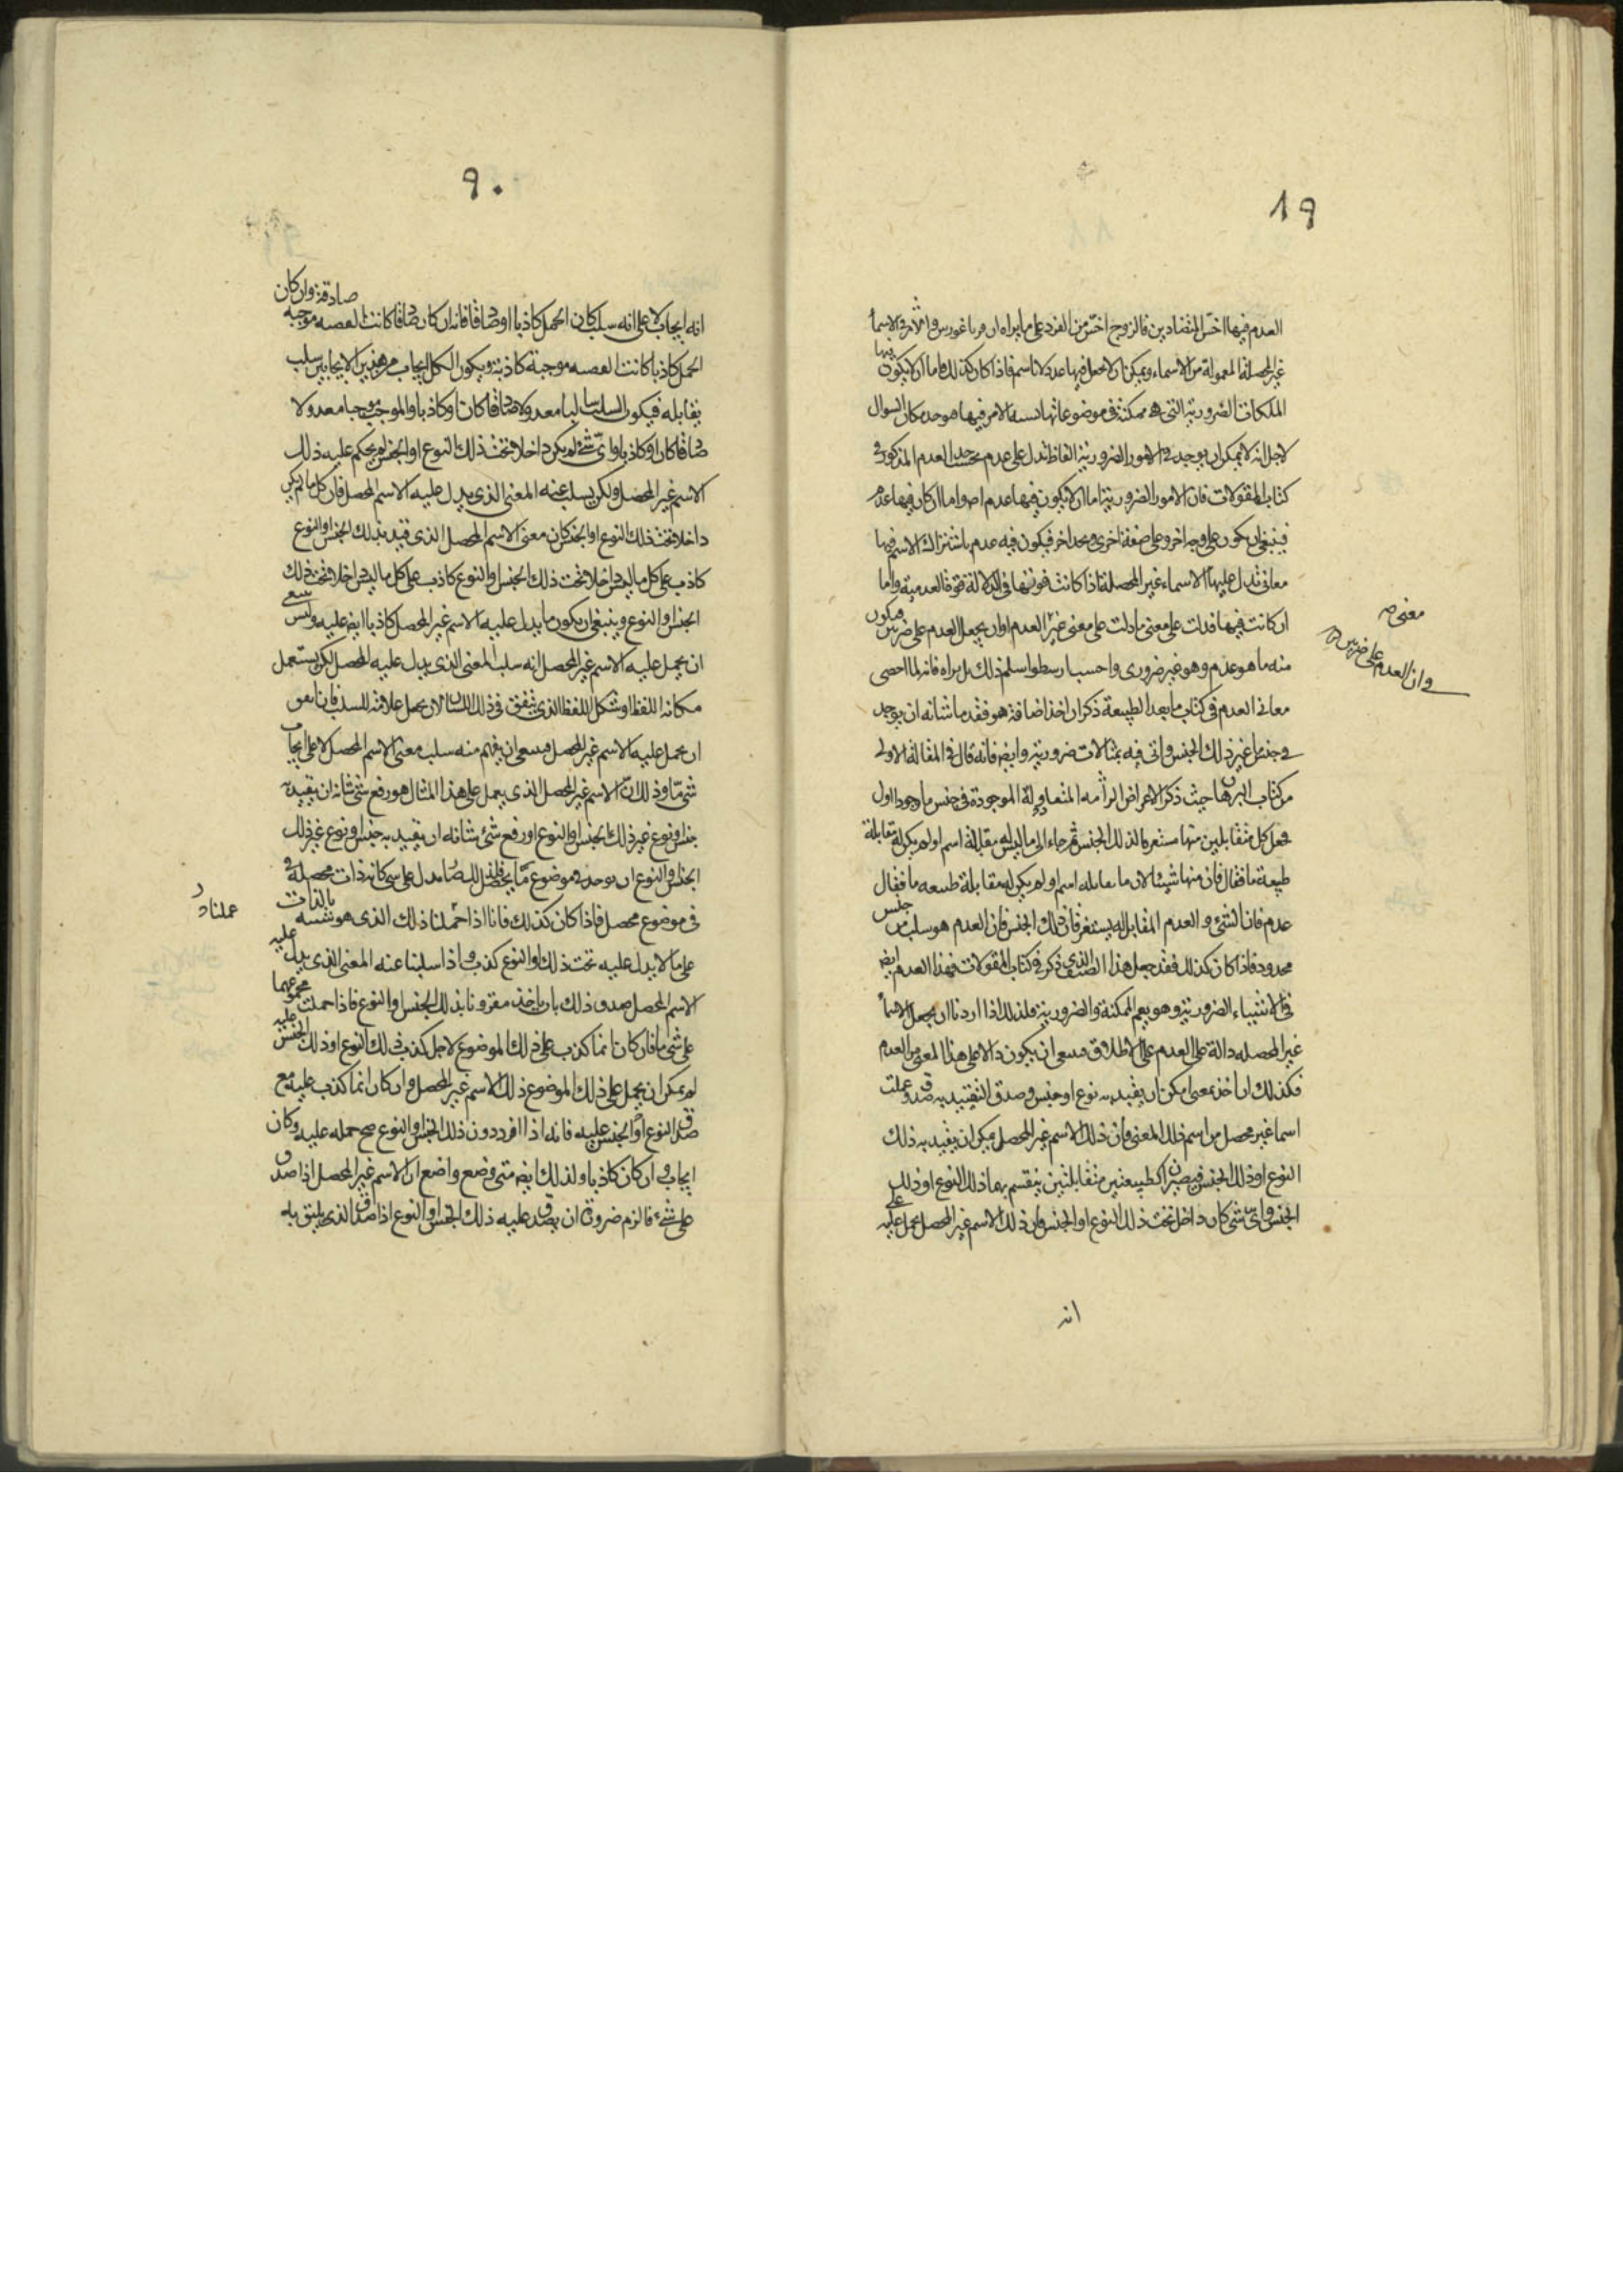 ٨٩
العدم فيها اخس المتضادين فالزوج اخس من الفرد على ما يراه ان فوثاغورس والامر في الاسماء
غير المحصلة المعمولة من الاسماء ويمكن ان لا يجعل فيها عدولا ناسم فاذا كان كذلك فاما ان لا يكون فيها
الملكات الضرورية التي هي ممكنة في موضوعاتها الامر فيها هو حد مكان السوال
لاجل انه لا يمكن ان يوجد في الامور الضرورية الفاظ تدل على عدم بحسب حد العدم المذكور في
كتاب المقولات فان الامور الضرورية اما ان لا يكون فيها عدم اصلا واما ان كان فيها عدم
فينبغي ان يكون على وجه اخر وعلى صفة اخرى وبحد اخر فيكون فيه عدم باشتراك الاسم فيها
معاني تدل عليها الاسماء غير المحصلة اذا كانت قوتها في الدلالة قوة العدمية واما
ان كانت فيها فدلت على معنى ما دلت على معنى غير العدم او ان يجعل العدم على ضربين فيكون
معنى صح
وان العدم على ضربين
منه ما هو عدم وهو غير ضروري واحسب ارسطو اسلم ذلك بل يراه فانه لما احصى
معاني العدم في كتاب ما بعد الطبيعة ذكر ان احدا ضافة هو فقد ما شانه ان يوجد
في جنس غير ذلك الجنس واتى فيه بمثالات ضرورية وايض فانه قال في المقالة الاولى
من كتاب البرهان حيث ذكر الاعراض المتقابلة الموجودة في جنس ما وجودا اول
فجعل كل متقابلين منها مستغرقا لذلك الجنس ثم جاء الى ما ليس له مقابلة اسم او لم يكن له مقابلة
طبيعة ما فقال فان منها شيئا لان ما يقابله اسم او لم يكن له مقابلة طبيعة ما فقال
عدم فان الشيء والعدم المقابل له يستغرقان ذلك الجنس فان العدم هو سلب من جنس
محدود فاذا كان كذلك فقد جعل هذا الصنف الذي ذكر في كتاب المقولات فهذا العدم ايض
في الاشياء الضرورية وهو يعم الممكنة والضرورية فلذلك اذا اردنا ان يجعل الاسماء
غير المحصله دالة على العدم على الاطلاق فينبغي ان يكون دالا على هذا المعنى من العدم
فكذلك ان اخذ معنى امكن ان يقيد به نوع او جنس وصدق التقييد به صدق وعملت
اسما غير محصل من اسم ذلك المعنى فان ذلك الاسم غير المحصل يمكن ان يقيد به ذلك
النوع او ذلك الجنس فيصيران كطبيعتين متقابلتين ينقسم بهما ذلك النوع او ذلك
الجنس واي شي كان داخل تحت ذلك النوع او الجنس فان ذلك الاسم غير المحصل يحمل عليه على
انه
٩٠
انه ايجاب لا على انه سلب كان الحمل كاذبا او صادقا فانه ان كان صادقا كانت القضيه موجبة صادقة وان كان
الحمل كاذبا كانت القضيه موجبة كاذبة ويكون لكل ايجاب من هذين الايجابين سلب
يقابله فيكون السلب سالبا معدولا صادقا كان او كاذبا والموجب موجبا معدولا
صادقا كان او كاذبا واي شيء لم يكن داخلا تحت ذلك النوع او الجنس لم يحكم عليه ذلك
الاسم غير المحصل ولكن يسلب عنه المعنى الذي يدل عليه الاسم المحصل فان كل ما لم يكن
داخلا تحت ذلك النوع او الجنس كان معنى الاسم المحصل الذي قيد بذلك الجنس او النوع
كاذب على كل ما ليس داخلا تحت ذلك الجنس او النوع كاذب على كل ما ليس داخلا تحت ذلك
الجنس او النوع وينبغي ان يكون ما يدل عليه الاسم غير المحصل كاذبا ايض عليه وليس ينبغي
ان يحمل عليه الاسم غير المحصل انه سلب المعنى الذي يدل عليه المحصل لكن يستعمل
مكانه اللفظ او شكل اللفظ الذي يتفق في ذلك اللسان لان يجعل علامة للسلب فان اتفق
ان يحمل عليه الاسم غير المحصل فينبغي ان يفهم منه سلب معنى الاسم المحصل لا على ايجاب
شي ما وذلك ان الاسم غير المحصل الذي يعمل على هذا المثال هو رفع شي شانه ان يقيد به
جنس او نوع غير ذلك الجنس او النوع او رفع شيء شانه ان يقيد به جنس او نوع غير ذلك
الجنس او النوع ان يوجد في موضوع ما يدل على شي كانه ذات محصلة في
في موضوع محصل فاذا كان كذلك فانا اذا حملنا ذلك الذي هو بنفسه بالذات
عملناد
على ما لا يدل عليه تحت ذلك او النوع كذب واذا سلبنا عنه المعنى الذي يدل عليه
الاسم المحصل صدق ذلك بان ياخذ مقرونا بذلك الجنس او النوع فاذا حملت مجموعهما
على شي ما فان كان انما كذب على ذلك الموضوع لاجل كذب ذلك النوع او ذلك الجنس عليه
لم يمكن ان يحمل على ذلك الموضوع ذلك الاسم غير المحصل وان كان انما كذب عليه مع
صدق النوع او الجنس عليه فانه اذا افرد دون ذلك الجنس او النوع صح حمله عليه وكان
ايجاب وان كان كاذبا ولذلك ايض متى وضع واضع ان الاسم غير المحصل اذا صدق
على شيء فالزم ضرورة ان يصدق عليه ذلك الجنس او النوع اذا صدق الذي يليق به